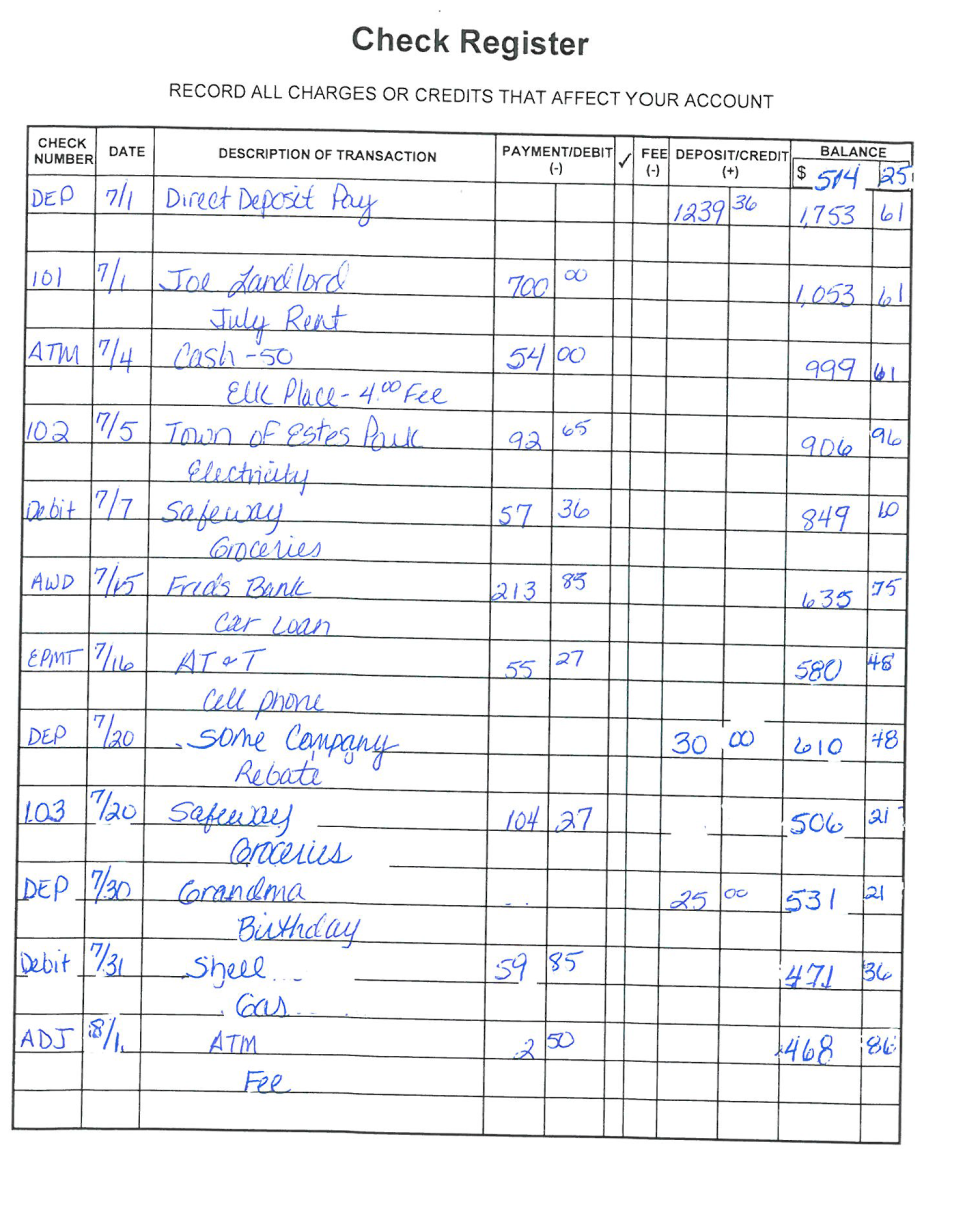 Check Register
RECORD ALL CHARGES OR CREDITS THAT AFFECT YOUR ACCOUNT
CHECK NUMBER DATE DESCRIPTION OF TRANSACTION PAYMENT/DEBIT (-) ✓ FEE (-) DEPOSIT/CREDIT (+) BALANCE
$ 514 25
DEP 7/1 Direct Deposit Pay 1239 36 1,753 61
101 7/1 Joe Landlord 700 00 1,053 61
July Rent
ATM 7/4 Cash - 50 54 00 999 61
Elk Place - 4.00 Fee
102 7/5 Town of Estes Park 92 65 906 96
Electricity
Debit 7/7 Safeway 57 36 849 60
Groceries
AWD 7/15 Fred's Bank 213 85 635 75
Car Loan
EPMT 7/16 AT&T 55 27 580 48
Cell phone
DEP 7/20 Some Company 30 00 610 48
Rebate
103 7/20 Safeway 104 27 506 21
Groceries
DEP 7/30 Grandma 25 00 531 21
Birthday
Debit 7/31 Shell 59 85 471 36
Gas
ADJ 8/1 ATM 2 50 468 86
Fee